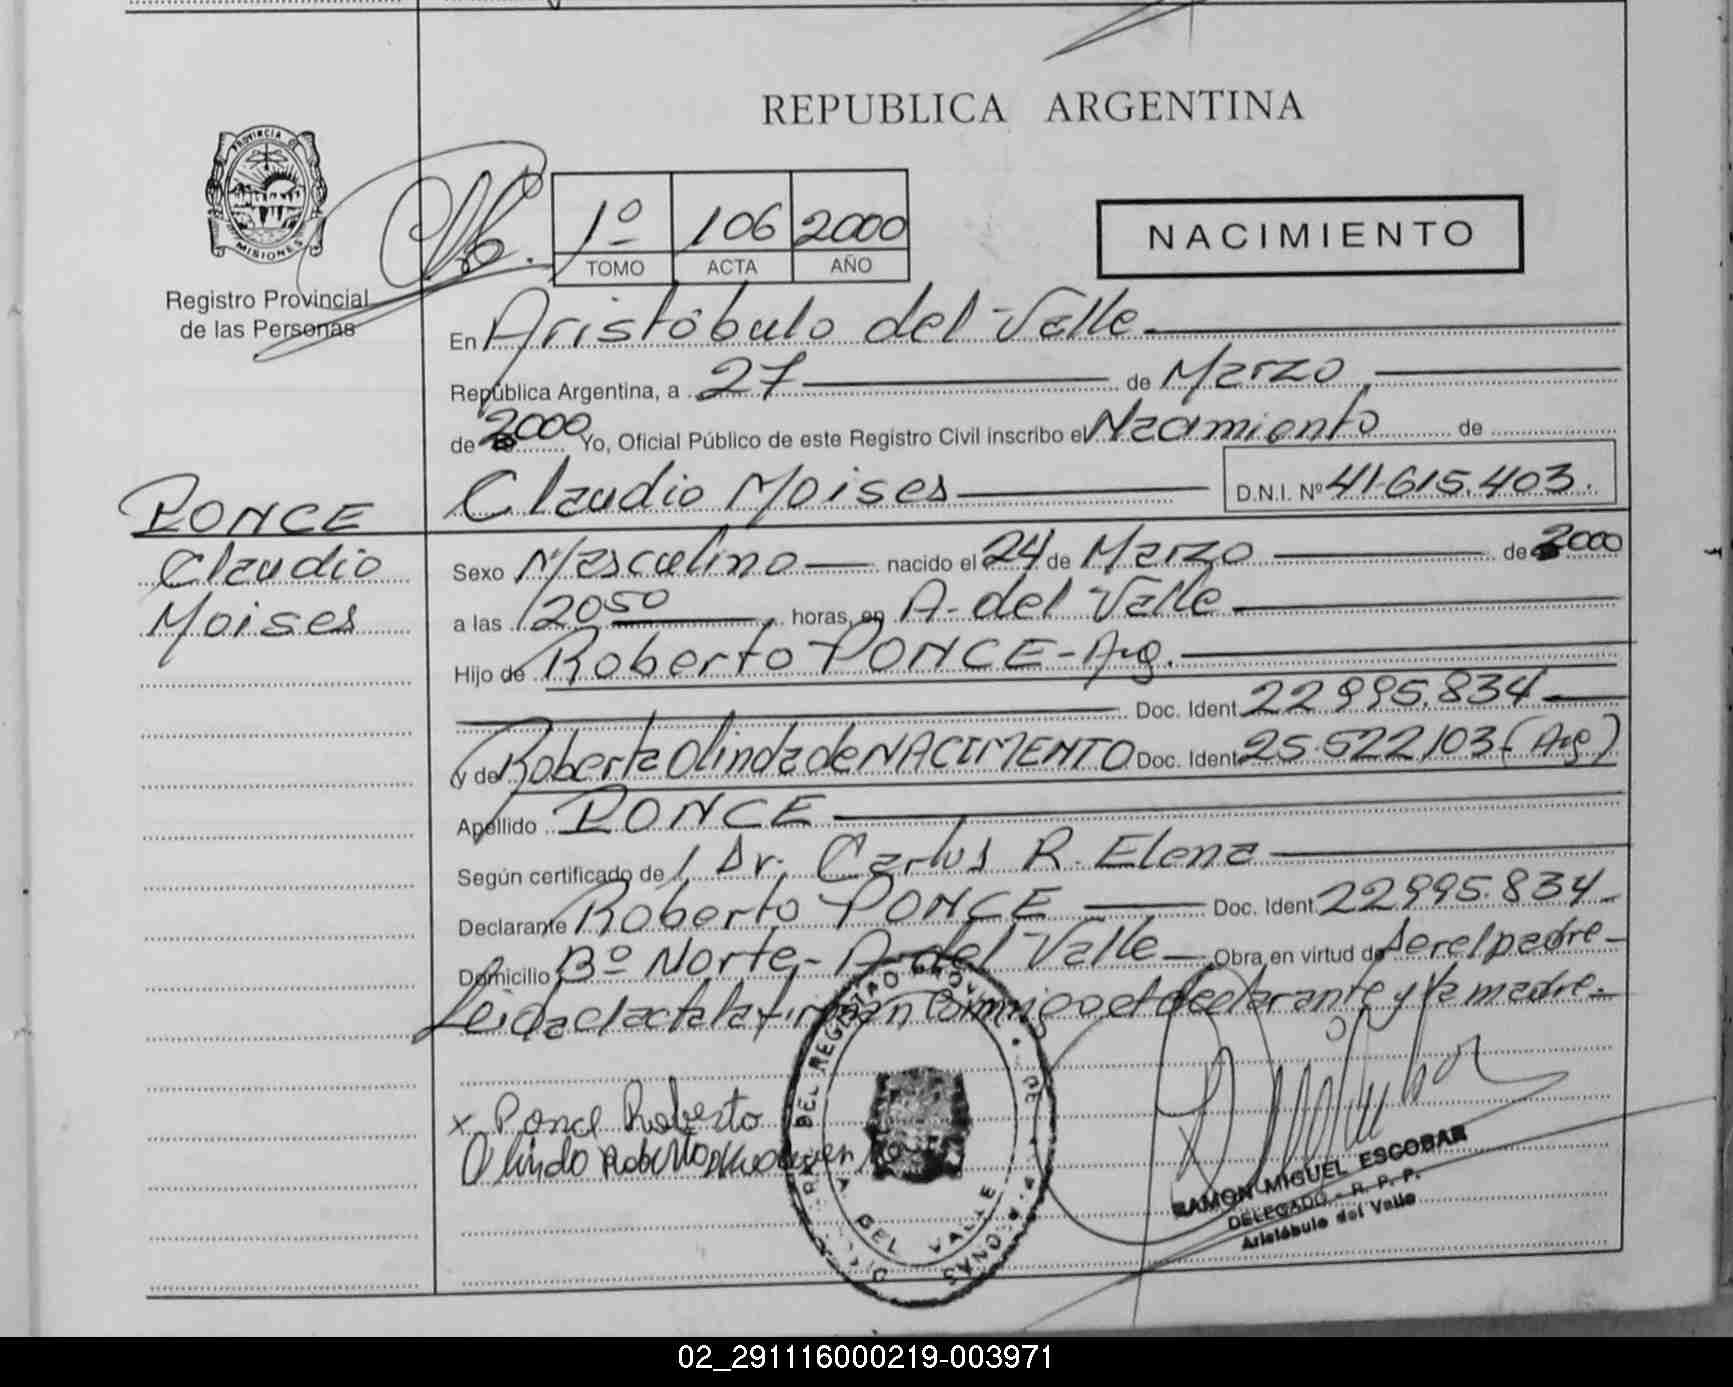 REPUBLICA ARGENTINA
PROVINCIA DE
MISIONES
Registro Provincial
de las Personas
1º 106 2000
TOMO ACTA AÑO
NACIMIENTO
En Aristóbulo del Valle
República Argentina, a 27 de Marzo
de 2000 Yo, Oficial Público de este Registro Civil inscribo el Nacimiento de
Claudio Moises D.N.I. Nº 41.615.403.
PONCE
Claudio
Moises
Sexo Masculino nacido el 24 de Marzo de 2000
a las 1205º horas, en A. del Valle
Hijo de Roberto PONCE - Arg.
Doc. Ident 22995.834
y de Roberta Olinda de NACIMENTO Doc. Ident 25.522103 (Arg)
Apellido PONCE
Según certificado de Dr. Carlos R. Elena
Declarante Roberto PONCE Doc. Ident. 22995.834
Domicilio Bº Norte - A. del Valle Obra en virtud de ser el padre
Leida el acta la firman conmigo el declarante y la madre.
x Ponce Roberto
DEL REGISTRO PROV
DEL VALLE
RAMON MIGUEL ESCOBAR
DELEGADO - R. P. P.
Aristóbulo del Valle
02_291116000219-003971